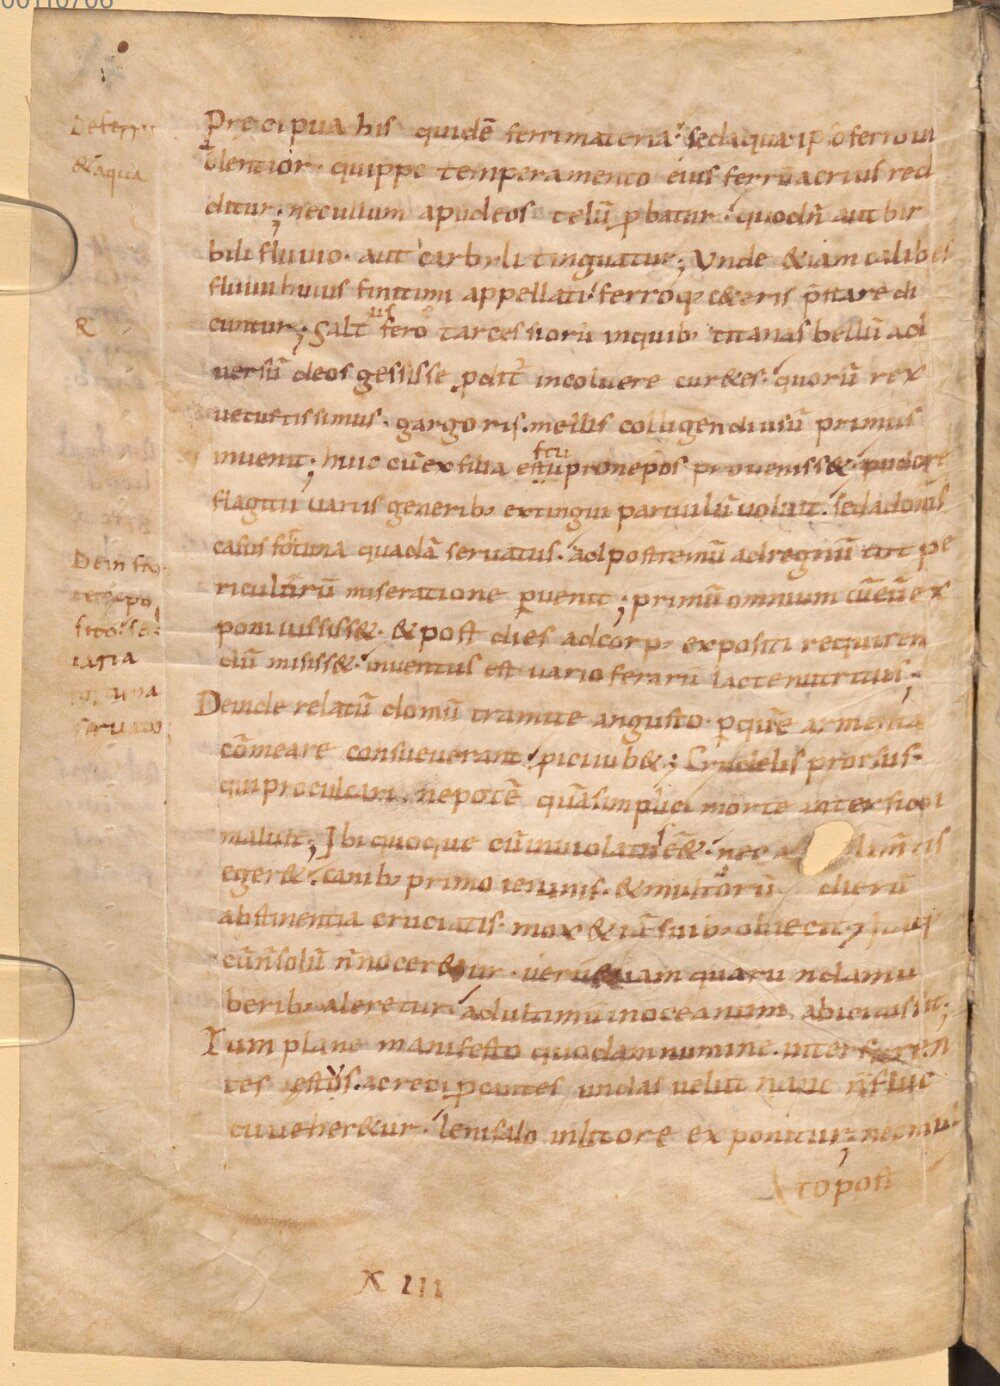 De ferro
& aqua
Precipua his quidē ferri materia. sed aqua ipso ferro ui
olentior. quippe temperamento eius ferrū acrius red
ditur; nec ullum apud eos telū ꝓbatur. quod n̄ aut bir
bili fluuio. aut carbuli tinguatur; Vnde & iam calibes
fluuii huius finitimi appellati. ferroq; c&eris p̄stare di
cuntur; Salt fero tartessiorū in quib; titanas bellū ad
uersū deos gessisse ꝓdit̄ incoluere cur&es. quorū rex
uetustissimus. gargoris. mellis colligendi usū primus
inuenit; huic cū ex filia pronepos prouenisset. pudore
flagitii uariis generib; extingui paruulū uoluit. sed ad om̄s
casus fortuna quadā seruatus. ad postremū ad regnū tot pe
riculorū miseratione ꝑuenit; primū omnium cū eū ex
poni iussiss&. & post dies ad corp; expositi requiren
dū misiss&. inuentus est uario ferarū lacte nutritus;
Deinde relatū domū tramite angusto. ꝑ quē armenta
cōmeare consueuerant. ꝓici iub&; Crudelis prorsus.
qui proculcari. nepotē quā simplici morte interfici
maluit; Ibi quoque cū inuiolatus ēē&. nec a lim̄tis
eger&. canib; primo ieiunis. & multorū dierū
abstinentia cruciatis. mox & iā suib; obiecit;
cū n̄ solū n̄ nocer&ur. uerū &iam quarundam u
berib; aleretur. ad ultimū in oceanum abici iussit;
Tum plane manifesto quodam numine. inter
tes estus. ac reciꝓcantes undas uelut naue n̄ fluc
tu ueher&ur. leni salo in litore exponitur; nec mul
to post
XIII